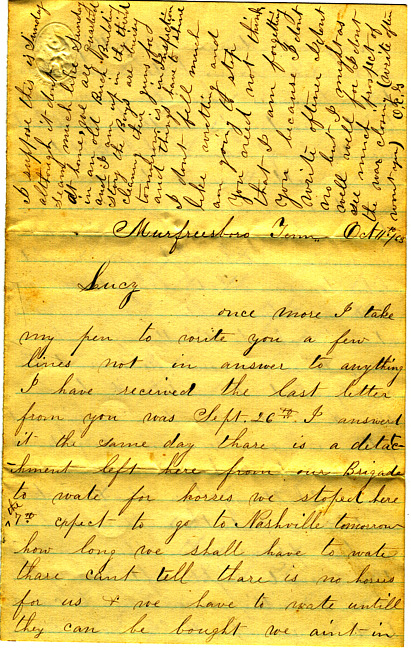 Murfreesboro Tenn. Oct 11th /63
Lucy
once more I take
my pen to write you a few
lines not in answer to anything
I have received the last letter
from you was Sept. 26th I answerd
it the same day thare is a detac-
hment left here from our Brigade
to wate for horses we stoped here
the 7th expect to go to Nashville tomorrow
how long we shall have to wate
thare cant tell thare is no horses
for us & we have to wate untill
they can be bought we aint in
I suppose this is Sunday
although it dont
seam much like Sunday
at home, we are quartered
in an old Brick Building
and I am up in the third
story the Boys are busy
cleaning their guns for
tomorrow is inspection
and things have to shine
I dont fell much
like writing and
am going to stop
You need not think
that I am forgetting
you because I dont
write oftener I dont
no but I ought as
well well for I dont
see much prospect of
the war closing (write often
wont you) O.E.G